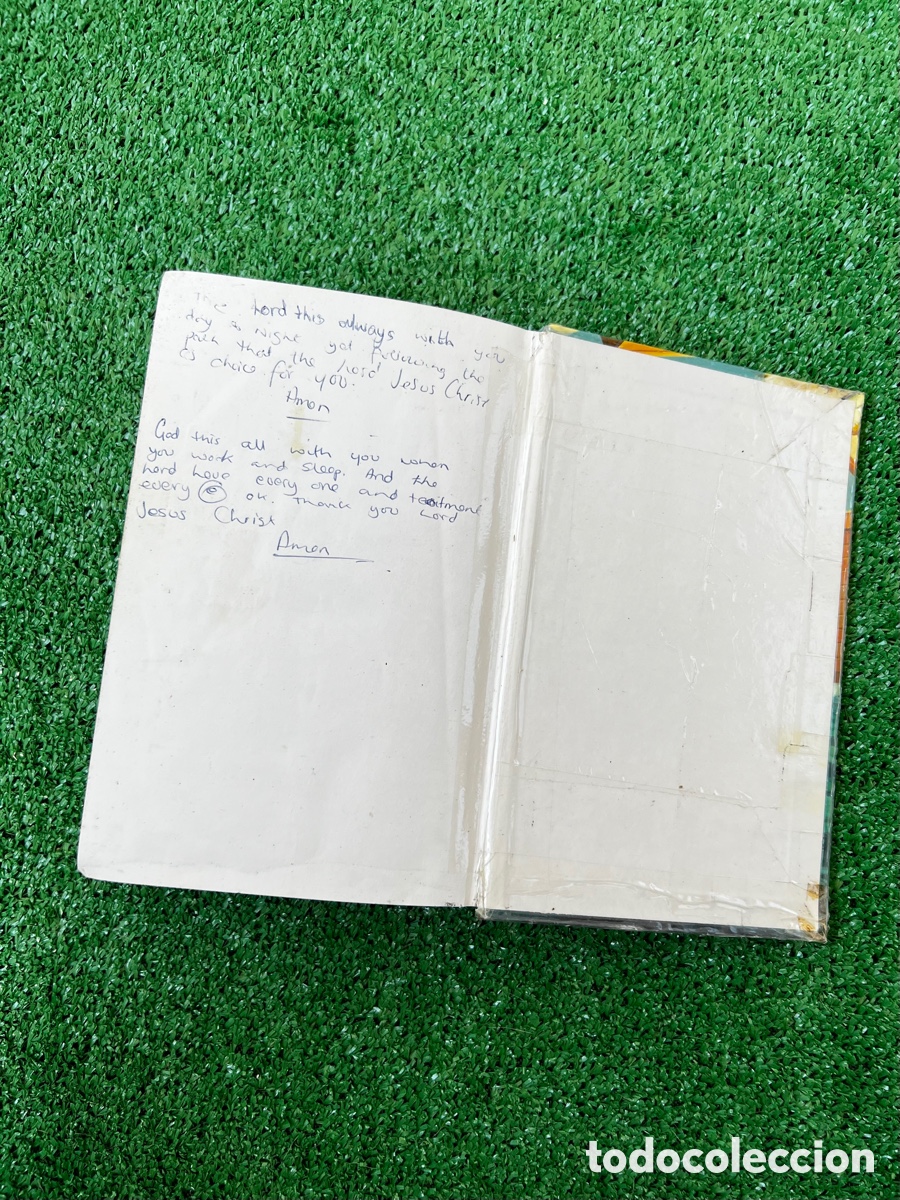 The Lord this always with you
day a night yet following the
path that the Lord Jesus Christ
is choice for you.
Amen
God this all with you when
you work and sleep. And the
Lord have every one and
every e ok. Thank you Lord
Jesus Christ
Amen
todocoleccion